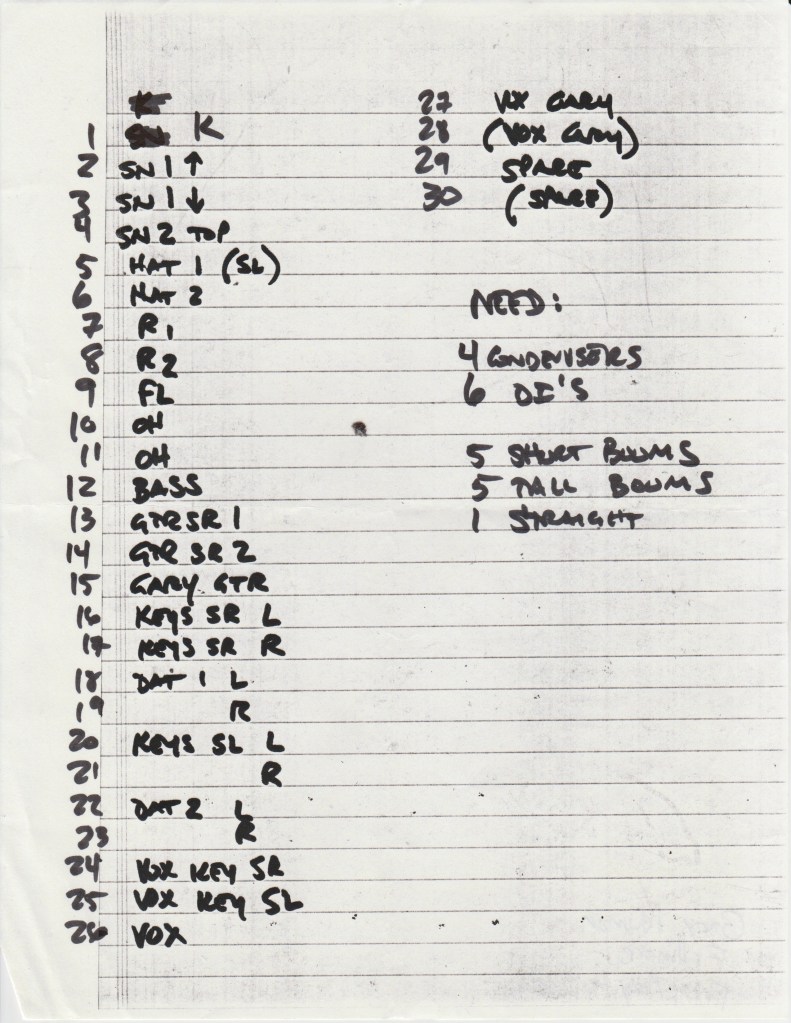 1 K
2 SN 1 ↑
3 SN 1 ↓
4 SN 2 TOP
5 HAT 1 (SL)
6 HAT 2
7 R1
8 R2
9 FL
10 OH
11 OH
12 BASS
13 GTR SR 1
14 GTR SR 2
15 GARY GTR
16 KEYS SR L
17 KEYS SR R
18 DAT 1 L
19 R
20 KEYS SL L
21 R
22 DAT 2 L
23 R
24 VOX KEY SR
25 VOX KEY SL
26 VOX
27 VOX GARY
28 (VOX GARY)
29 SPARE
30 (SPARE)
NEED:
4 CONDENSERS
6 DI'S
5 SHORT BOOMS
5 TALL BOOMS
1 STRAIGHT